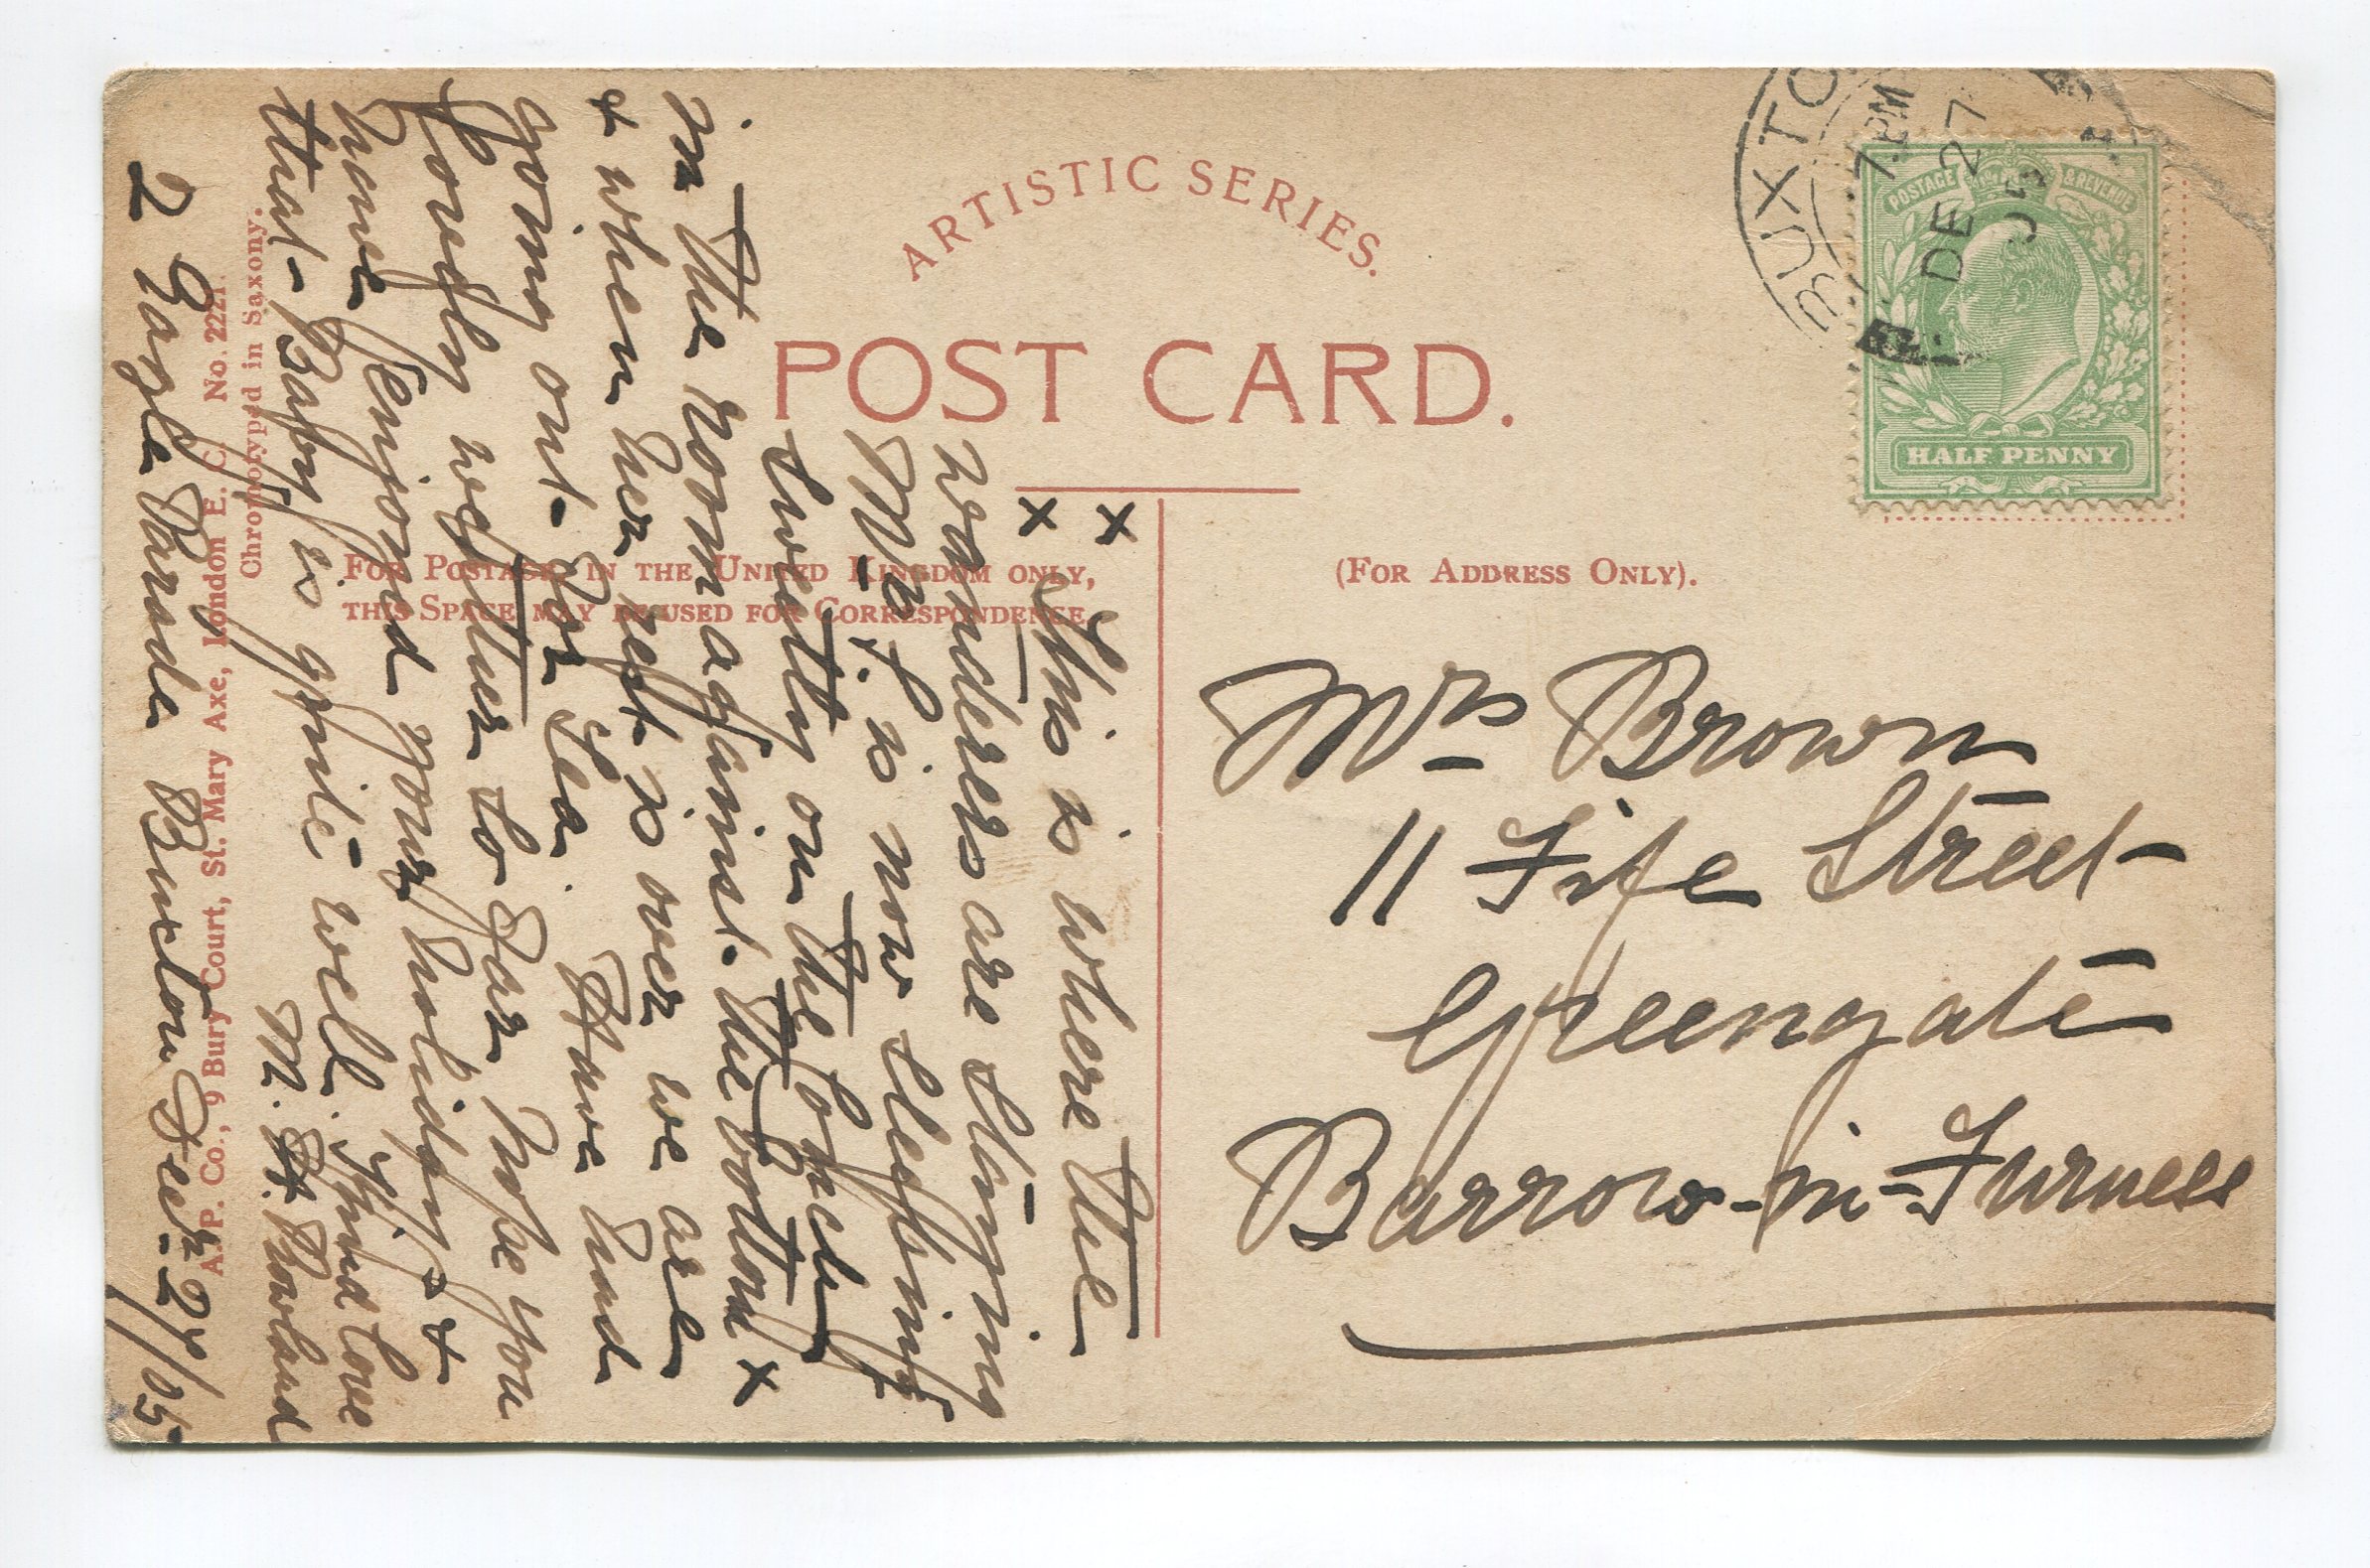 ARTISTIC SERIES.
POST CARD.
FOR POSTAGE IN THE UNITED KINGDOM ONLY,
THIS SPACE MAY BE USED FOR CORRESPONDENCE.
(FOR ADDRESS ONLY).
BUXTO
7. PM
DE 27
05
POSTAGE & REVENUE
HALF PENNY
Mrs Brown
11 Fife Street
Greengate
Barrow-in-Furness
x x
This is where the
wanderers are staying
Mrs. L. is now sleeping
sweetly on the
in the room against. the bottom x
& when her rest is over we are
going out for tea. Have had
lovely weather so far. Hope you
have enjoyed your holiday &
that Baby is quite well. Fond love
M. Rowland
2 Eagle Parade Buxton Decr. 27/05.
A. P. Co., 9 Bury Court, St. Mary Axe, London E. C. No. 2221.
Chromotyped in Saxony.